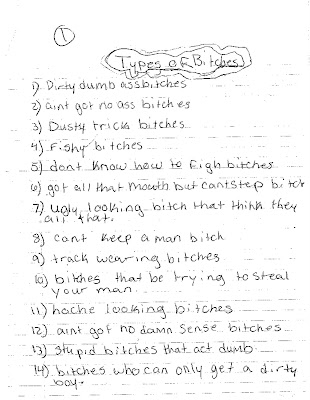 1
Types of Bitches
1) Dirty dumb assbitches
2) aint got no ass bitches
3) Dusty trick bitches
4) Fishy bitches
5) dont know how to figh bitches
6) got all that mouth but cantstep bitch
7) ugly looking bitch that think they
all that.
8) cant keep a man bitch
9) track wearing bitches
10) bitches that be trying to steal
your man.
11) hoche looking bitches
12) aint got no damn sense bitches
13) stupid bitches that act dumb.
14) bitches who can only get a dirty
boy.